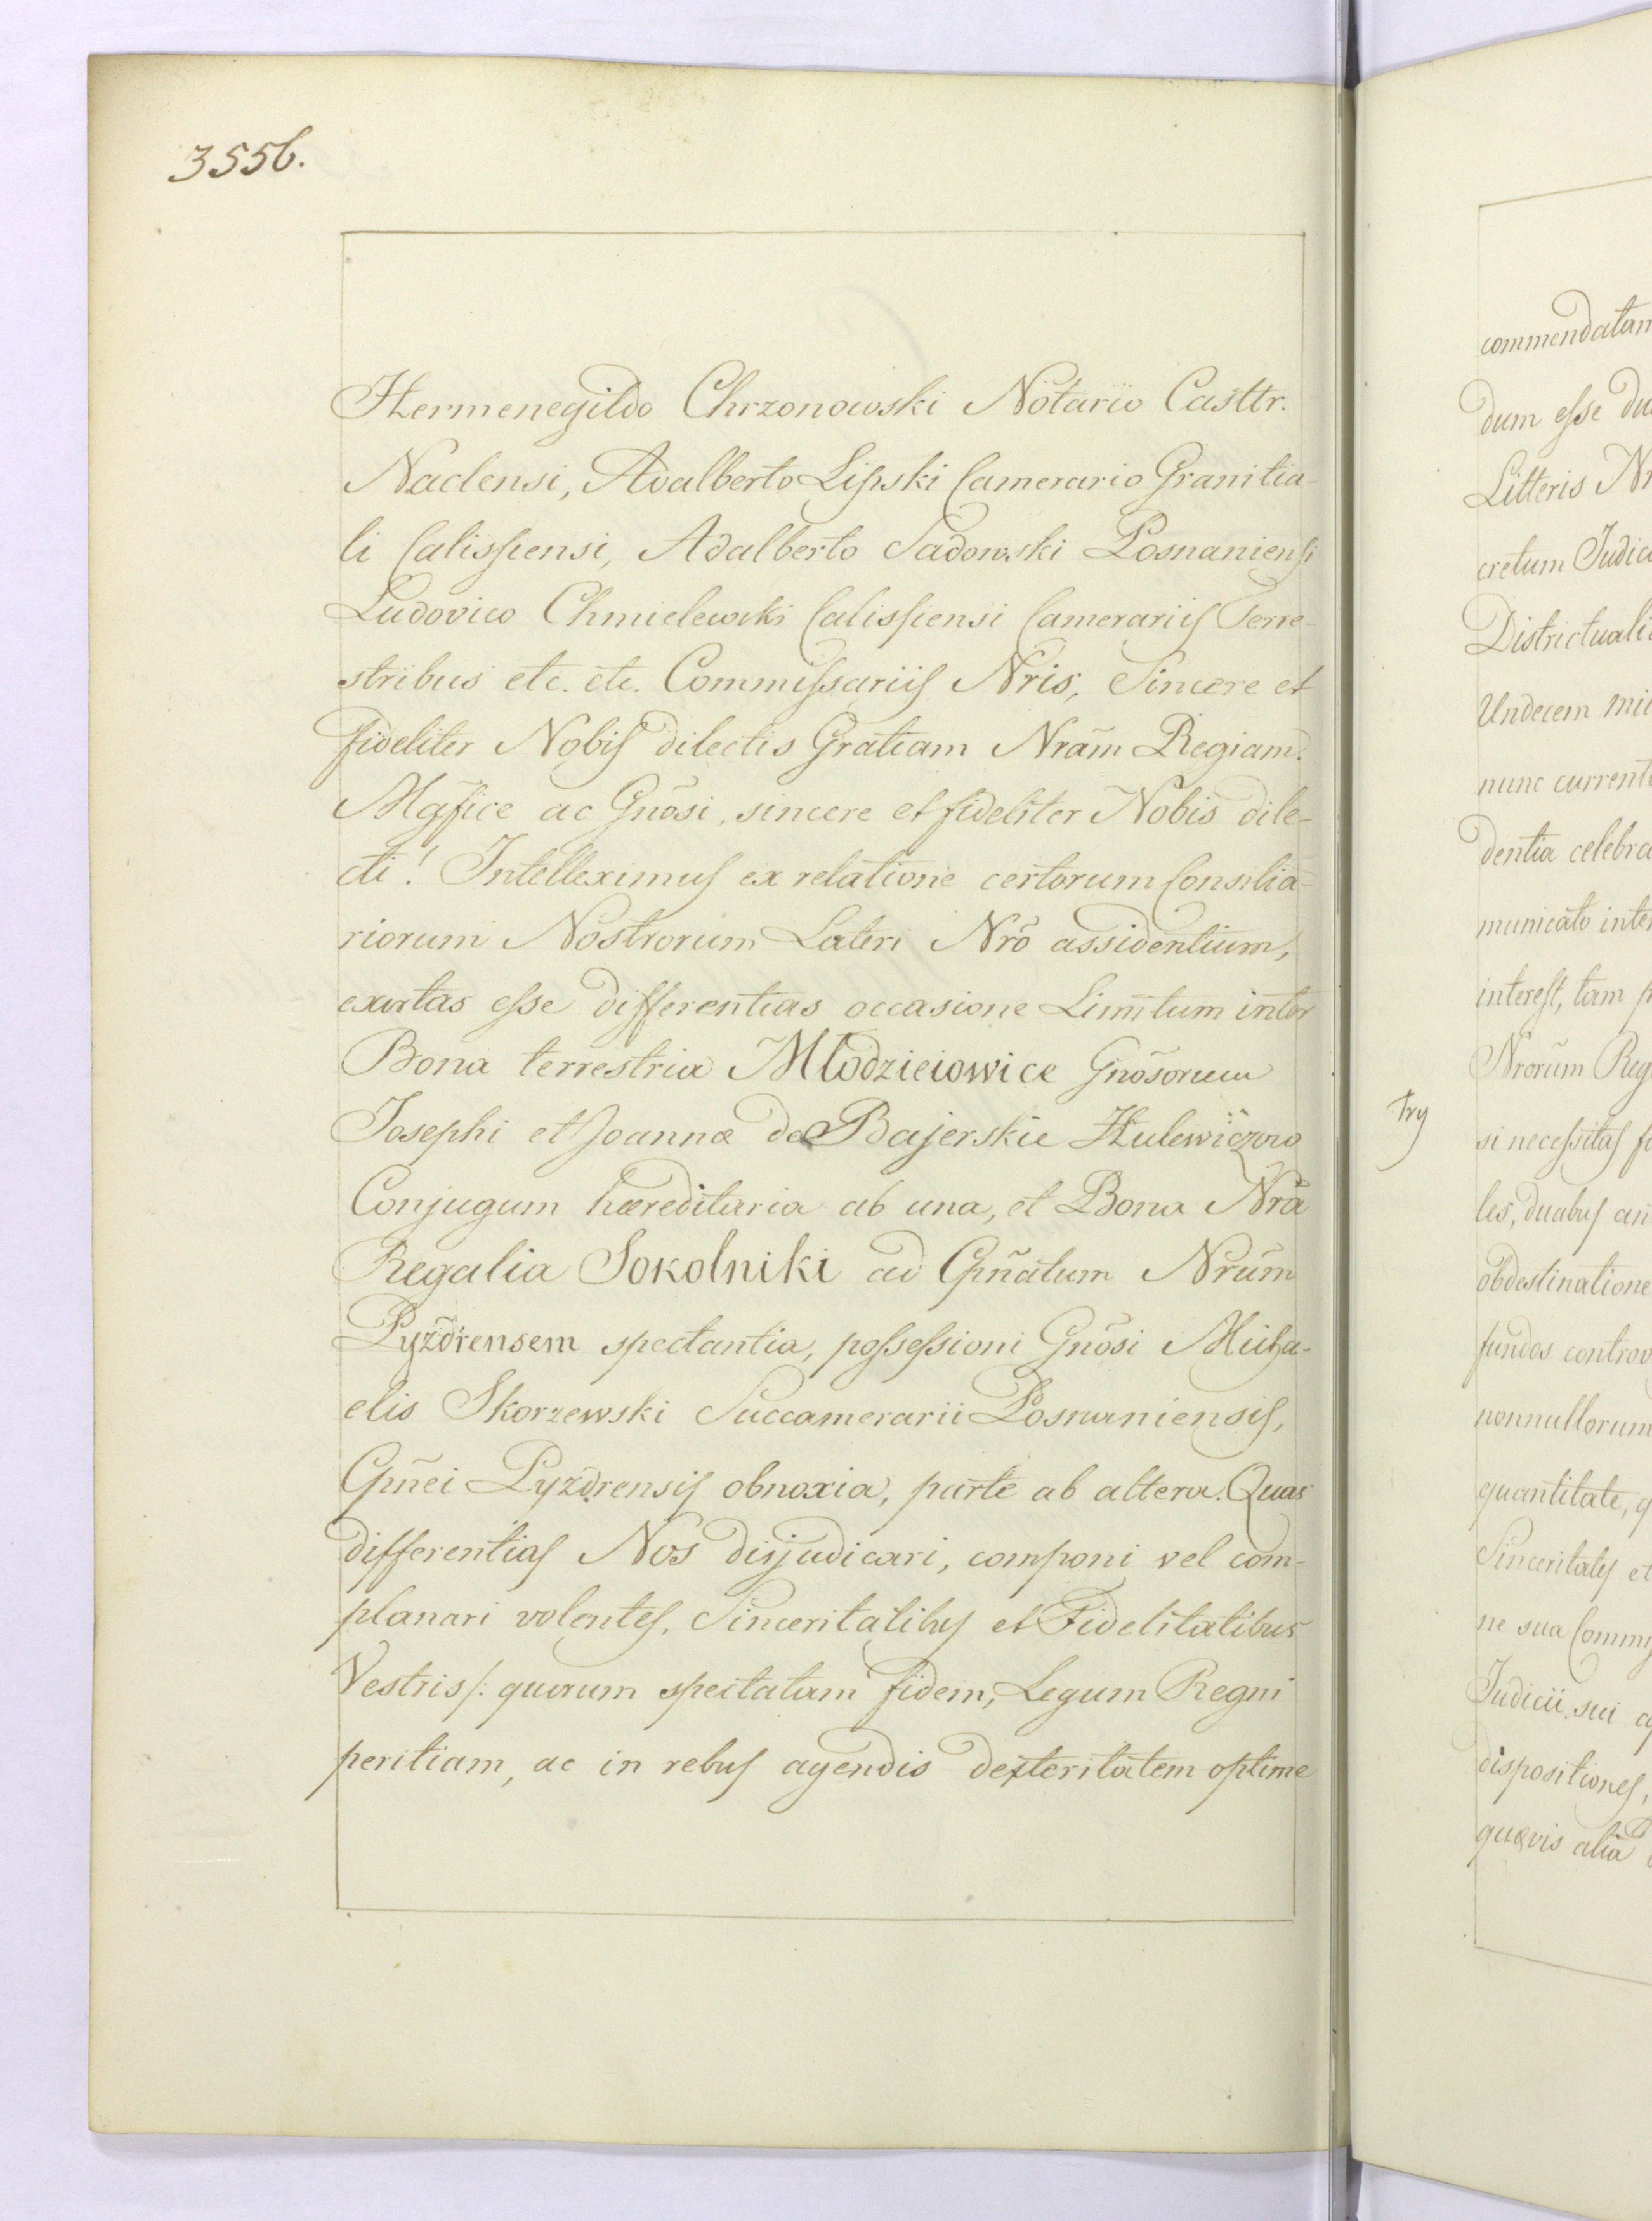 3556.
Hermenegildo Chrzonowski Notario Casttr.
Naclensi, Adalberto Lipski Camerario Granitia-
li Calissiensi, Adalberto Sadowski Posnaniensi
Ludovico Chmielewski Calissiensi Camerariis Terre-
stribus etc. etc. Commissariis Nris, Sincere et
fideliter Nobis dilectis Gratiam Nram̃ Regiam.
Mgfice ac Gnõsi, sincere et fideliter Nobis dile-
cti! Intelleximus ex relatione certorum Consilia-
riorum Nostrorum Lateri Nrõ assidentium,
exortas esse differentias occasione Limitum inter
Bona terrestria Młodzieiowice Gnõsorum
Josephi et Joannæ de Bajerskie Hulewiczow
Conjugum hæreditaria ab una, et Bona Nrã
Regalia Sokolniki ad Cpñatum Nrũm
Pyzdrensem spectantia, possessioni Gnõsi Micha-
elis Skorzewski Succamerarii Posnaniensis,
Cpñei Pyzdrensis obnoxia, parte ab altera. Quas
differentias Nos disjudicari, componi vel com-
planari volentes, Sinceritatibus et Fidelitatibus
Vestris /: quorum spectatam fidem, Legum Regni
peritiam, ac in rebus agendis dexteritatem optime
commendatam
dum esse du
Litteris Nr
cretum Judic
Districtuali
Undecem mil
nunc current
dentia celebra
municato inter
interest, tam p
Nrorum Reg
try
si necessitas f
les, duabus an
obdestinatione
fundos controv
nonnullorum
quantitate, q
Sinceritatis et
ne sua Commis
Judicii sui
dispositiones,
quævis alia